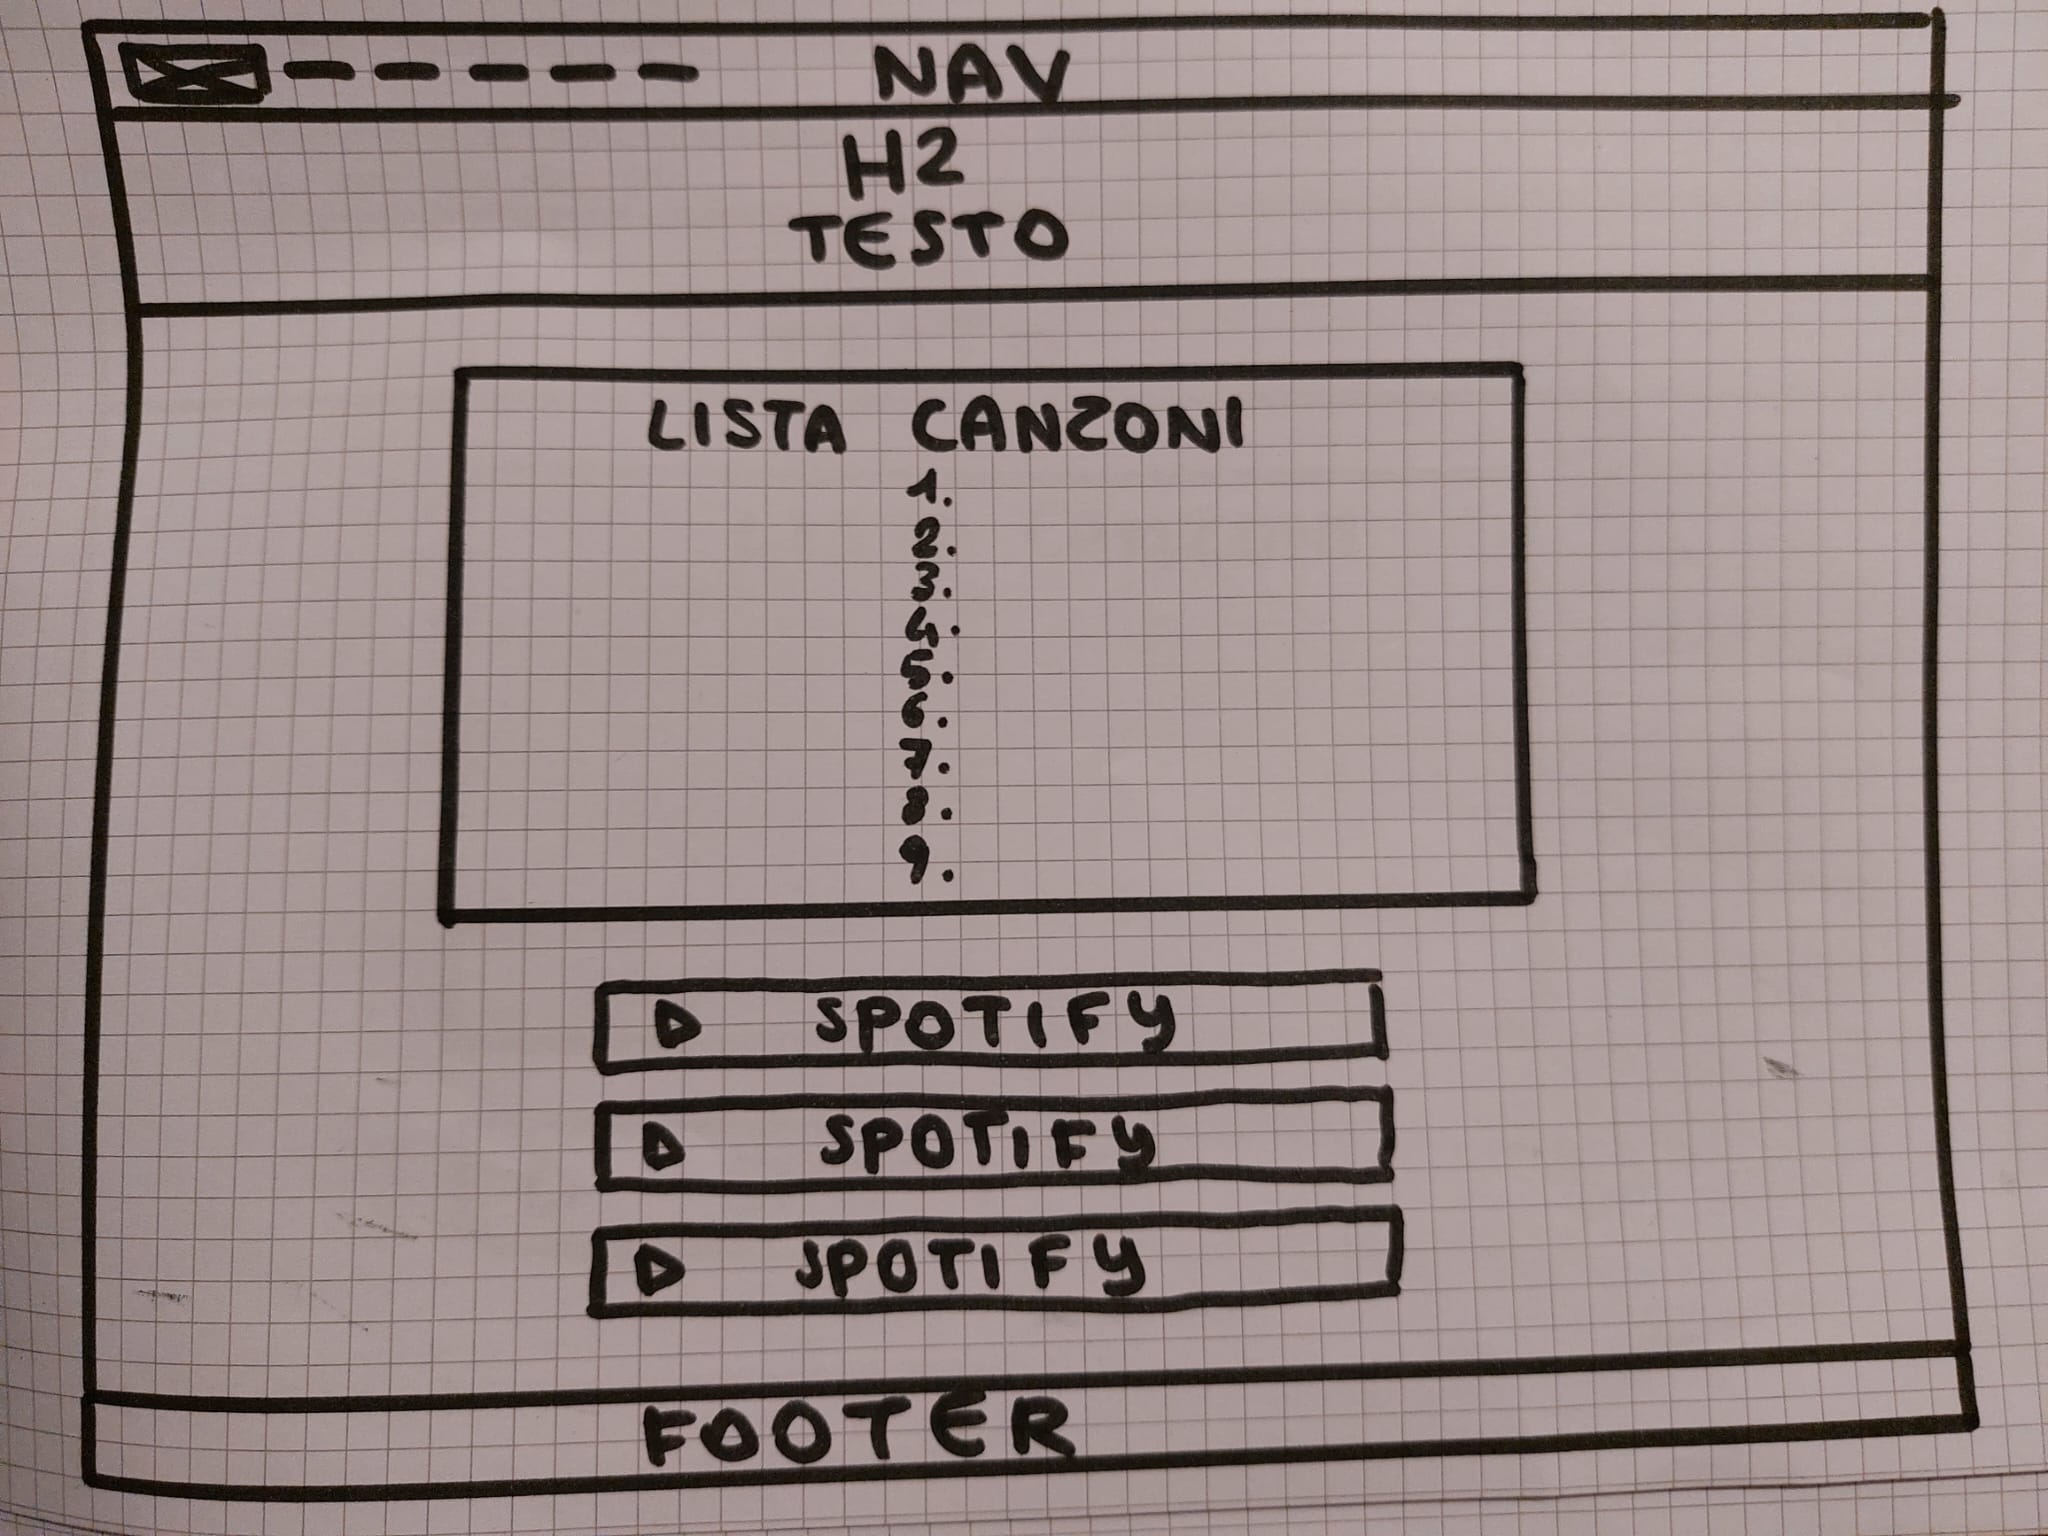 NAV
H2
TESTO
LISTA CANZONI
1.
2.
3.
4.
5.
6.
7.
8.
9.
SPOTIFY
SPOTIFY
SPOTIFY
FOOTER